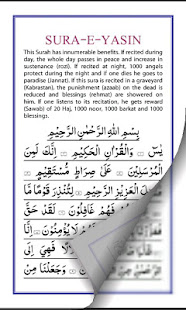 SURA-E-YASIN
This Surah has innumerable benefits. If recited during
day, the whole day passes in peace and increase in
sustenance (rozi). If recited at night, 1000 angels
protect during the night and if one dies he goes to
paradise (Jannat). If this sura is recited in a graveyard
(Kabrastan), the punishment (azaab) on the dead is
reduced and blessings (rehmat) are showered on
him. If one listens to its recitation, he gets reward
(Sawab) of 20 Haj, 1000 noor, 1000 barkat and 1000
blessings.
بِسْمِ اللّٰهِ الرَّحْمٰنِ الرَّحِيْمِ
يٰسٓ ۚ وَالْقُرْاٰنِ الْحَكِيْمِ ۙ اِنَّكَ لَمِنَ
الْمُرْسَلِيْنَ ۙ عَلٰى صِرَاطٍ مُّسْتَقِيْمٍ
الْعَزِيْزِ الرَّحِيْمِ ۙ لِتُنْذِرَ قَوْمًا مَّآ
فَهُمْ غٰفِلُوْنَ لَقَدْ حَقَّ
فَهِيَ اِلَى
وَجَعَلْنَا مِنْ